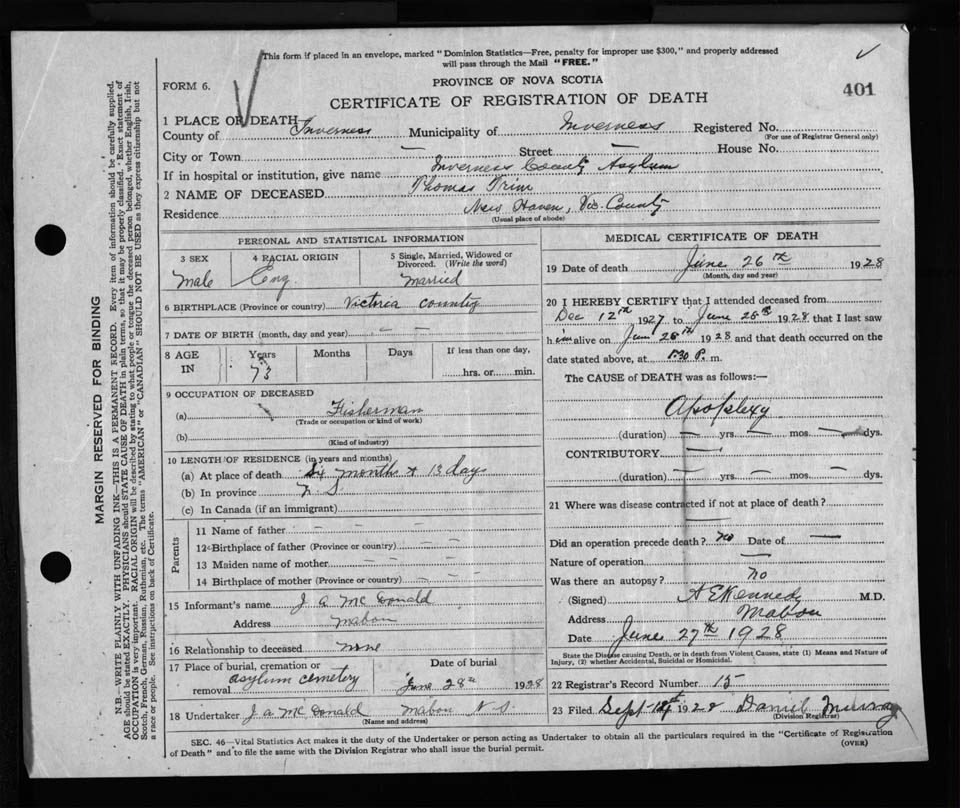 This form if placed in an envelope, marked "Dominion Statistics—Free, penalty for improper use $300," and properly addressed
will pass through the Mail "FREE."
FORM 6.
PROVINCE OF NOVA SCOTIA
401
CERTIFICATE OF REGISTRATION OF DEATH
1 PLACE OF DEATH
County of Inverness Municipality of Inverness Registered No.
(For use of Registrar General only)
City or Town — Street — House No.
If in hospital or institution, give name Inverness County Asylum
2 NAME OF DECEASED Thomas Trim
Residence New Haven, Vic. County
(Usual place of abode)
PERSONAL AND STATISTICAL INFORMATION
3 SEX 4 RACIAL ORIGIN 5 Single, Married, Widowed or
Divorced. (Write the word)
Male Eng. Married
6 BIRTHPLACE (Province or country) Victoria County
7 DATE OF BIRTH (month, day and year) — —
8 AGE IN Years Months Days If less than one day,
73 hrs. or min.
9 OCCUPATION OF DECEASED
(a) Fisherman
(Trade or occupation or kind of work)
(b)
(Kind of industry)
10 LENGTH OF RESIDENCE (in years and months)
(a) At place of death Six months + 13 days
(b) In province N. S
(c) In Canada (if an immigrant)
Parents
11 Name of father — — —
12 Birthplace of father (Province or country) — —
13 Maiden name of mother — —
14 Birthplace of mother (Province or country) — — —
15 Informant's name J A McDonald
Address Mabou
16 Relationship to deceased none
17 Place of burial, cremation or removal asylum cemetery
Date of burial
June 28th 1928
18 Undertaker J. A. McDonald Mabou N S.
(Name and address)
MEDICAL CERTIFICATE OF DEATH
19 Date of death June 26th 1928
(Month, day and year)
20 I HEREBY CERTIFY that I attended deceased from
Dec 12th 1927 to June 28th 1928 that I last saw
him alive on June 28th 1928 and that death occurred on the
date stated above, at 1.30 P. m.
The CAUSE of DEATH was as follows:—
Apoplexy
(duration) — yrs. — mos. — dys.
CONTRIBUTORY —
(duration) — yrs. — mos. — dys.
21 Where was disease contracted if not at place of death?
—
Did an operation precede death? no Date of —
Nature of operation —
Was there an autopsy? no
(Signed) A E Kennedy M.D.
Address Mabou
Date June 27th 1928
State the Disease causing Death, or in death from Violent Causes, state (1) Means and Nature of
Injury, (2) whether Accidental, Suicidal or Homicidal.
22 Registrar's Record Number 15
23 Filed Sept 1928 Daniel Murray
(Division Registrar)
SEC. 46—Vital Statistics Act makes it the duty of the Undertaker or person acting as Undertaker to obtain all the particulars required in the "Certificate of Registration
of Death" and to file the same with the Division Registrar who shall issue the burial permit.
(OVER)
MARGIN RESERVED FOR BINDING
N.B.—WRITE PLAINLY WITH UNFADING INK—THIS IS A PERMANENT RECORD. Every item of information should be carefully supplied.
AGE should be stated EXACTLY. PHYSICIANS should STATE CAUSE OF DEATH in plain terms, so that it may be properly classified. Exact statement of
OCCUPATION is very important. RACIAL ORIGIN will be described by stating to what people or tongue the deceased person belonged, whether English, Irish,
Scotch, French, German, Russian, Ruthenian, etc. The terms "AMERICAN" or "CANADIAN" SHOULD NOT BE USED as they express citizenship but not
a race or people. See instructions on back of Certificate.